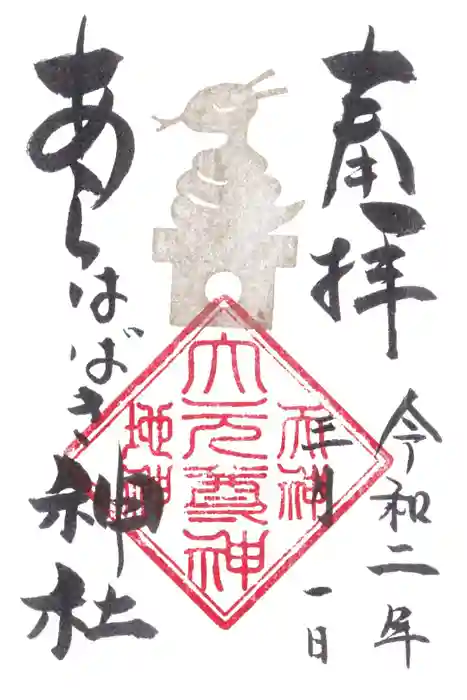 奉拝
令和二年
三月
一日
あらはばき神社
天神
大元尊神
地神